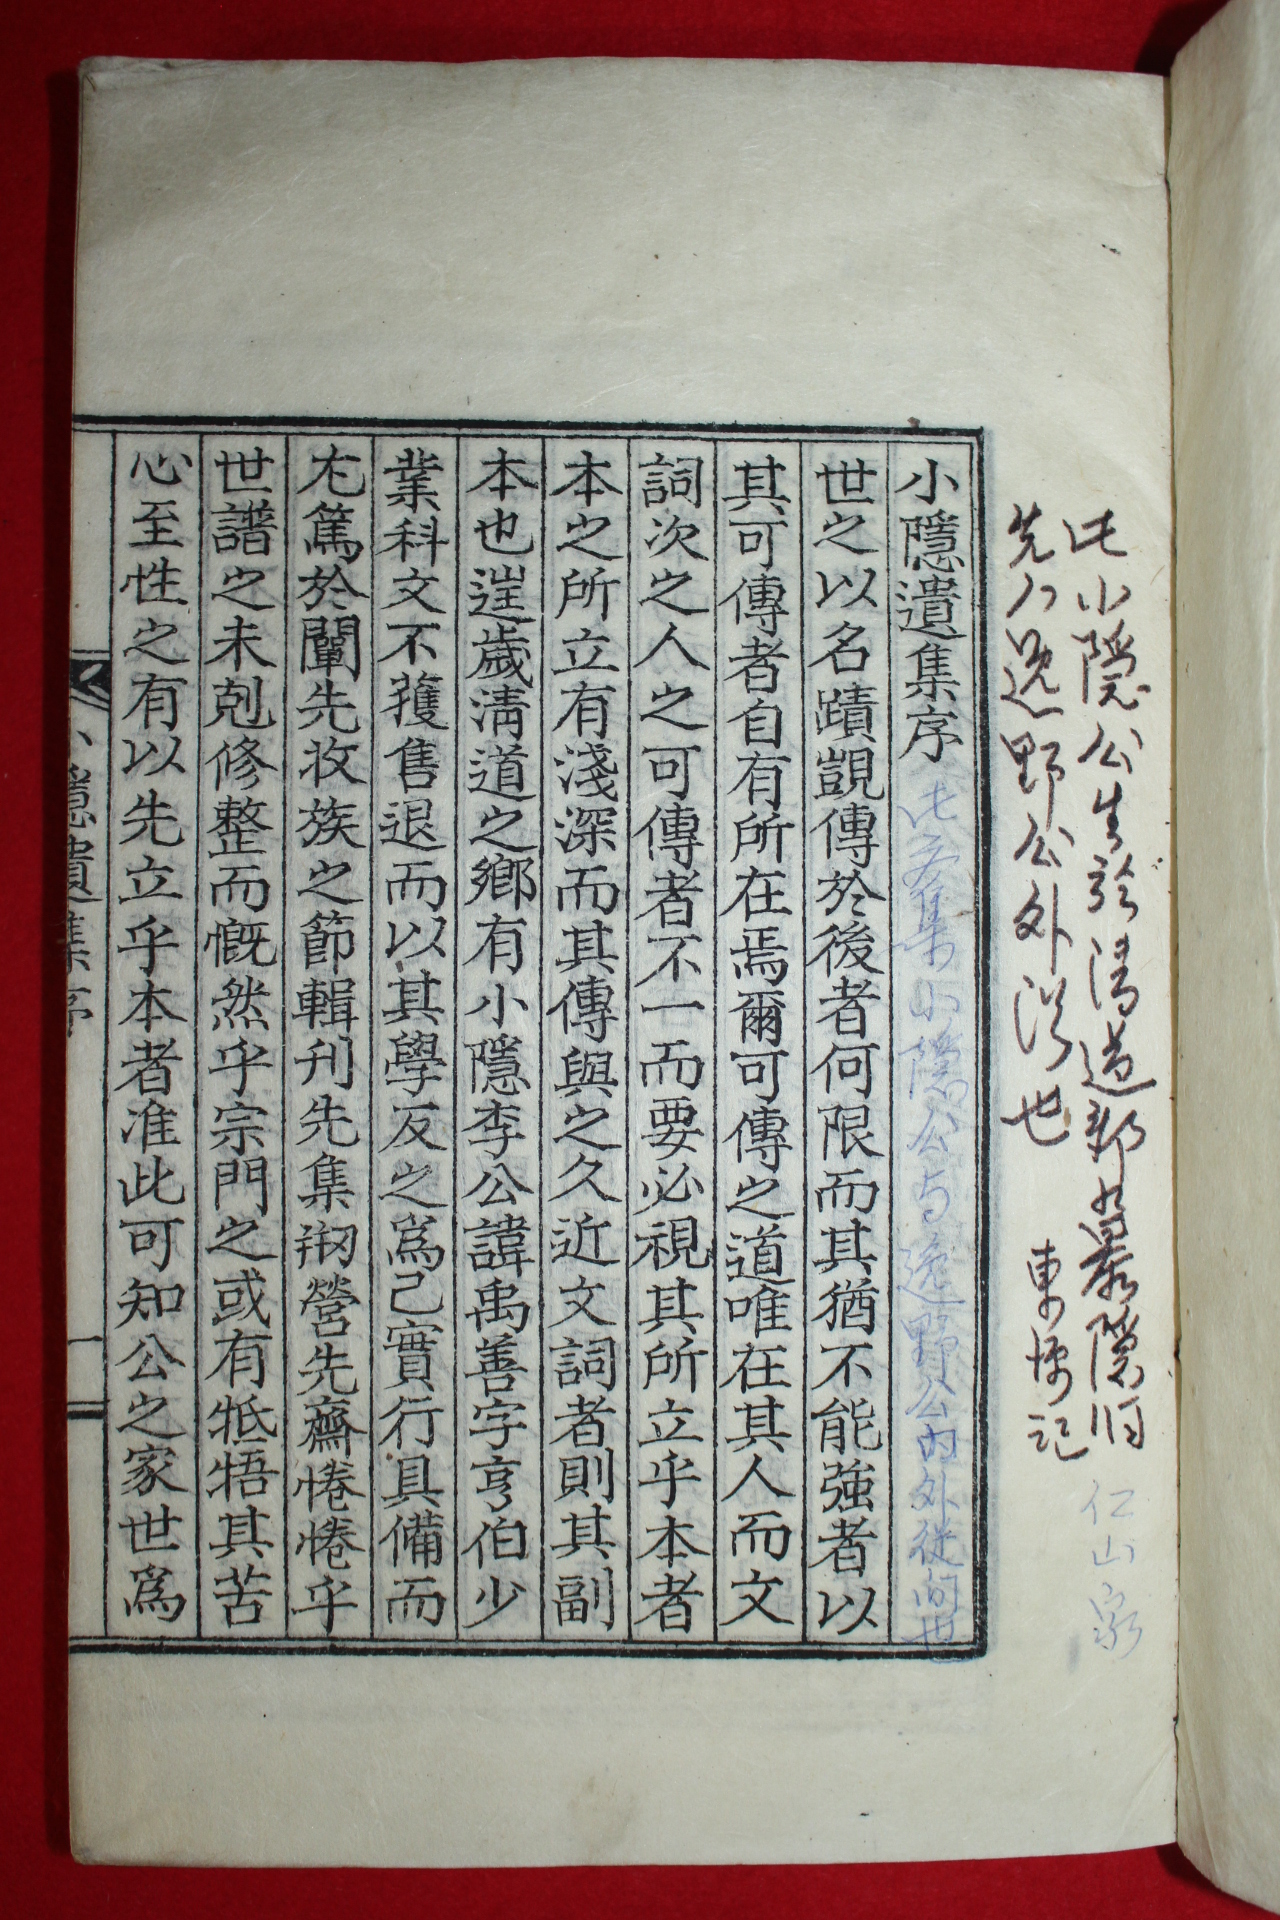 此小隱公生於清道郡
先人逸野公外從也
仁山家
小隱遺集序
此文集小隱公与逸野公内外從間也
世之以名蹟覬傳於後者何限而其猶不能強者以
其可傳者自有所在焉爾可傳之道唯在其人而文
詞次之人之可傳者不一而要必視其所立乎本者
本之所立有淺深而其傳與之久近文詞者則其副
本也逞歲淸道之鄕有小隱李公諱禹善字亨伯少
業科文不獲售退而以其學反之爲己實行具備而
尤篤於闡先收族之節輯刊先集刱營先齋惓惓乎
世譜之未剋修整而慨然乎宗門之或有牴牾其苦
心至性之有以先立乎本者准此可知公之家世爲
小隱遺集序
一